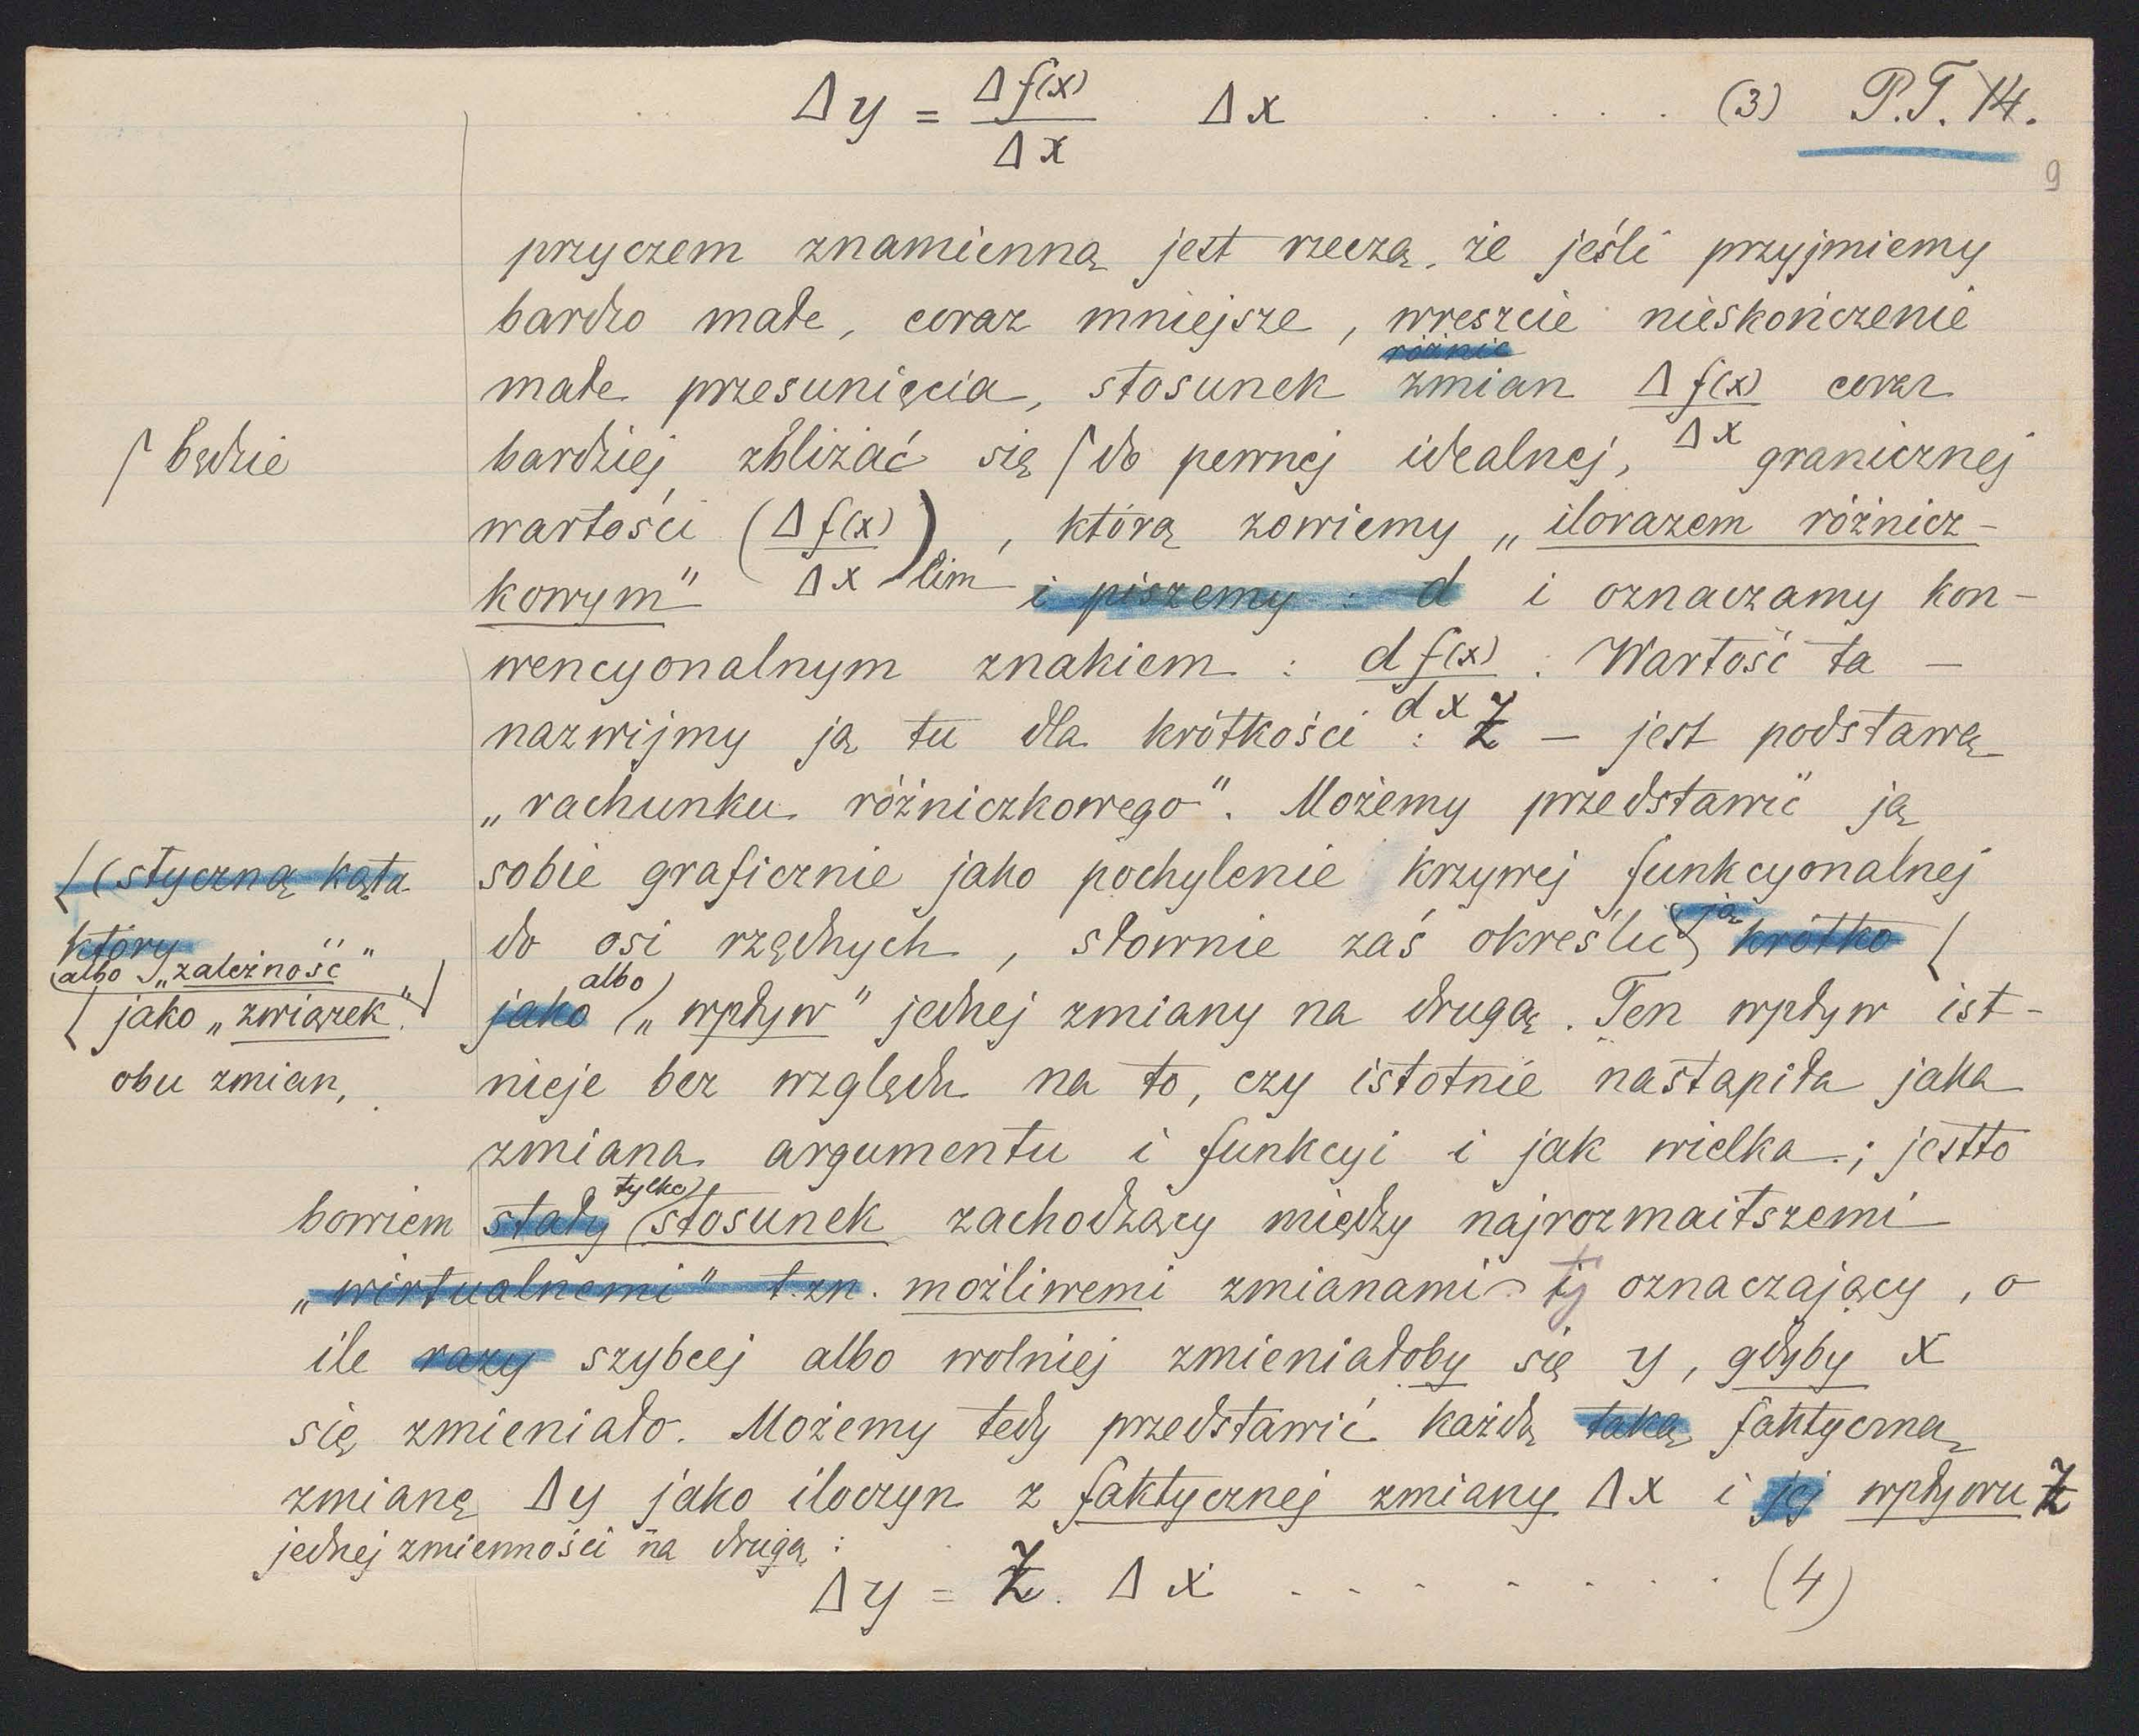 Δy = Δf(x)/Δx Δx . . . . . (3) P.T. 14.
9
przyczem znamienną jest rzeczą, że jeśli przyjmiemy
bardzo małe, coraz mniejsze, wreszcie nieskończenie
różnic
małe przesunięcia, stosunek zmian Δf(x)/Δx coraz
⌈ będzie
bardziej zbliżać się ⌈ do pewnej idealnej, granicznej
wartości (Δf(x)/Δx)lim, którą zowiemy „ilorazem różnicz-
kowym" i piszemy : d i oznaczamy kon-
wencyonalnym znakiem : df(x)/dx. Wartość ta —
nazwijmy ją tu dla krótkości : Z — jest podstawą
„rachunku różniczkowego". Możemy przedstawić ją
(styczną kąta
który
sobie graficznie jako pochylenie krzywej funkcyonalnej
do osi rzędnych, słownie zaś określić ją krótko
albo „zależność"
jako „związek"
obu zmian,
albo
jako „wpływ" jednej zmiany na drugą. Ten wpływ ist-
nieje bez względu na to, czy istotnie nastąpiła jaka
zmiana argumentu i funkcyi i jak wielka; jestto
tylko
bowiem stały stosunek zachodzący między najrozmaitszemi
„wirtualnemi" t. zn. możliwemi zmianami oznaczający, o
ile razy szybciej albo wolniej zmieniałoby się y, gdyby x
się zmieniało. Możemy tedy przedstawić każdą taką faktyczną
zmianę Δy jako iloczyn z faktycznej zmiany Δx i jej wpływu Z
jednej zmienności na drugą :
Δy = Z . Δx . . . . . . . . (4)